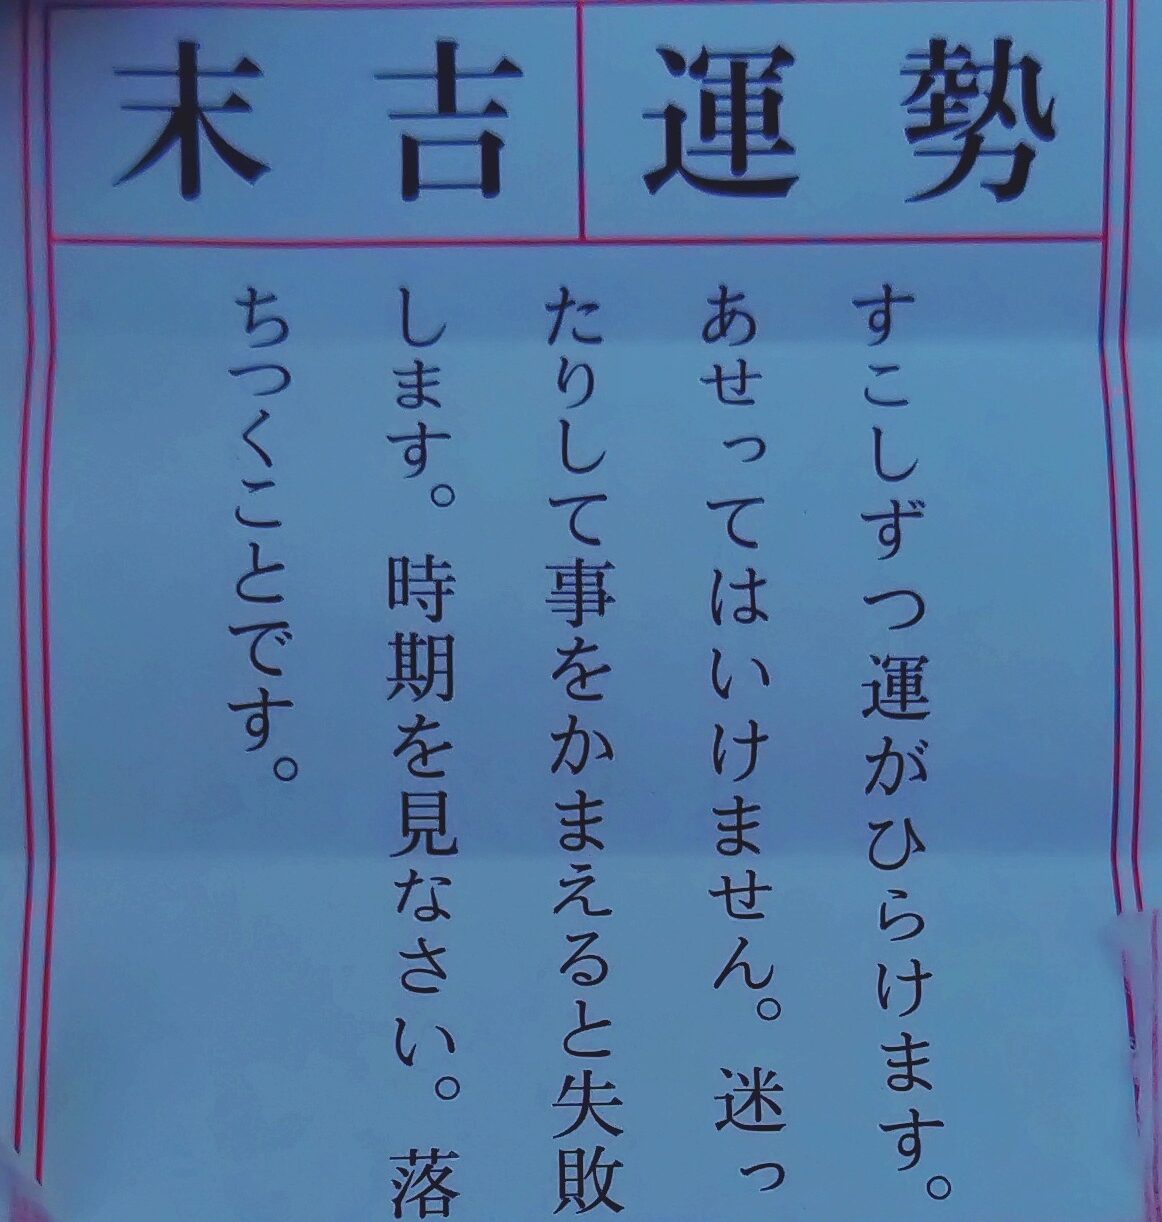 運勢
末吉
すこしずつ運がひらけます。
あせってはいけません。迷っ
たりして事をかまえると失敗
します。時期を見なさい。落
ちつくことです。